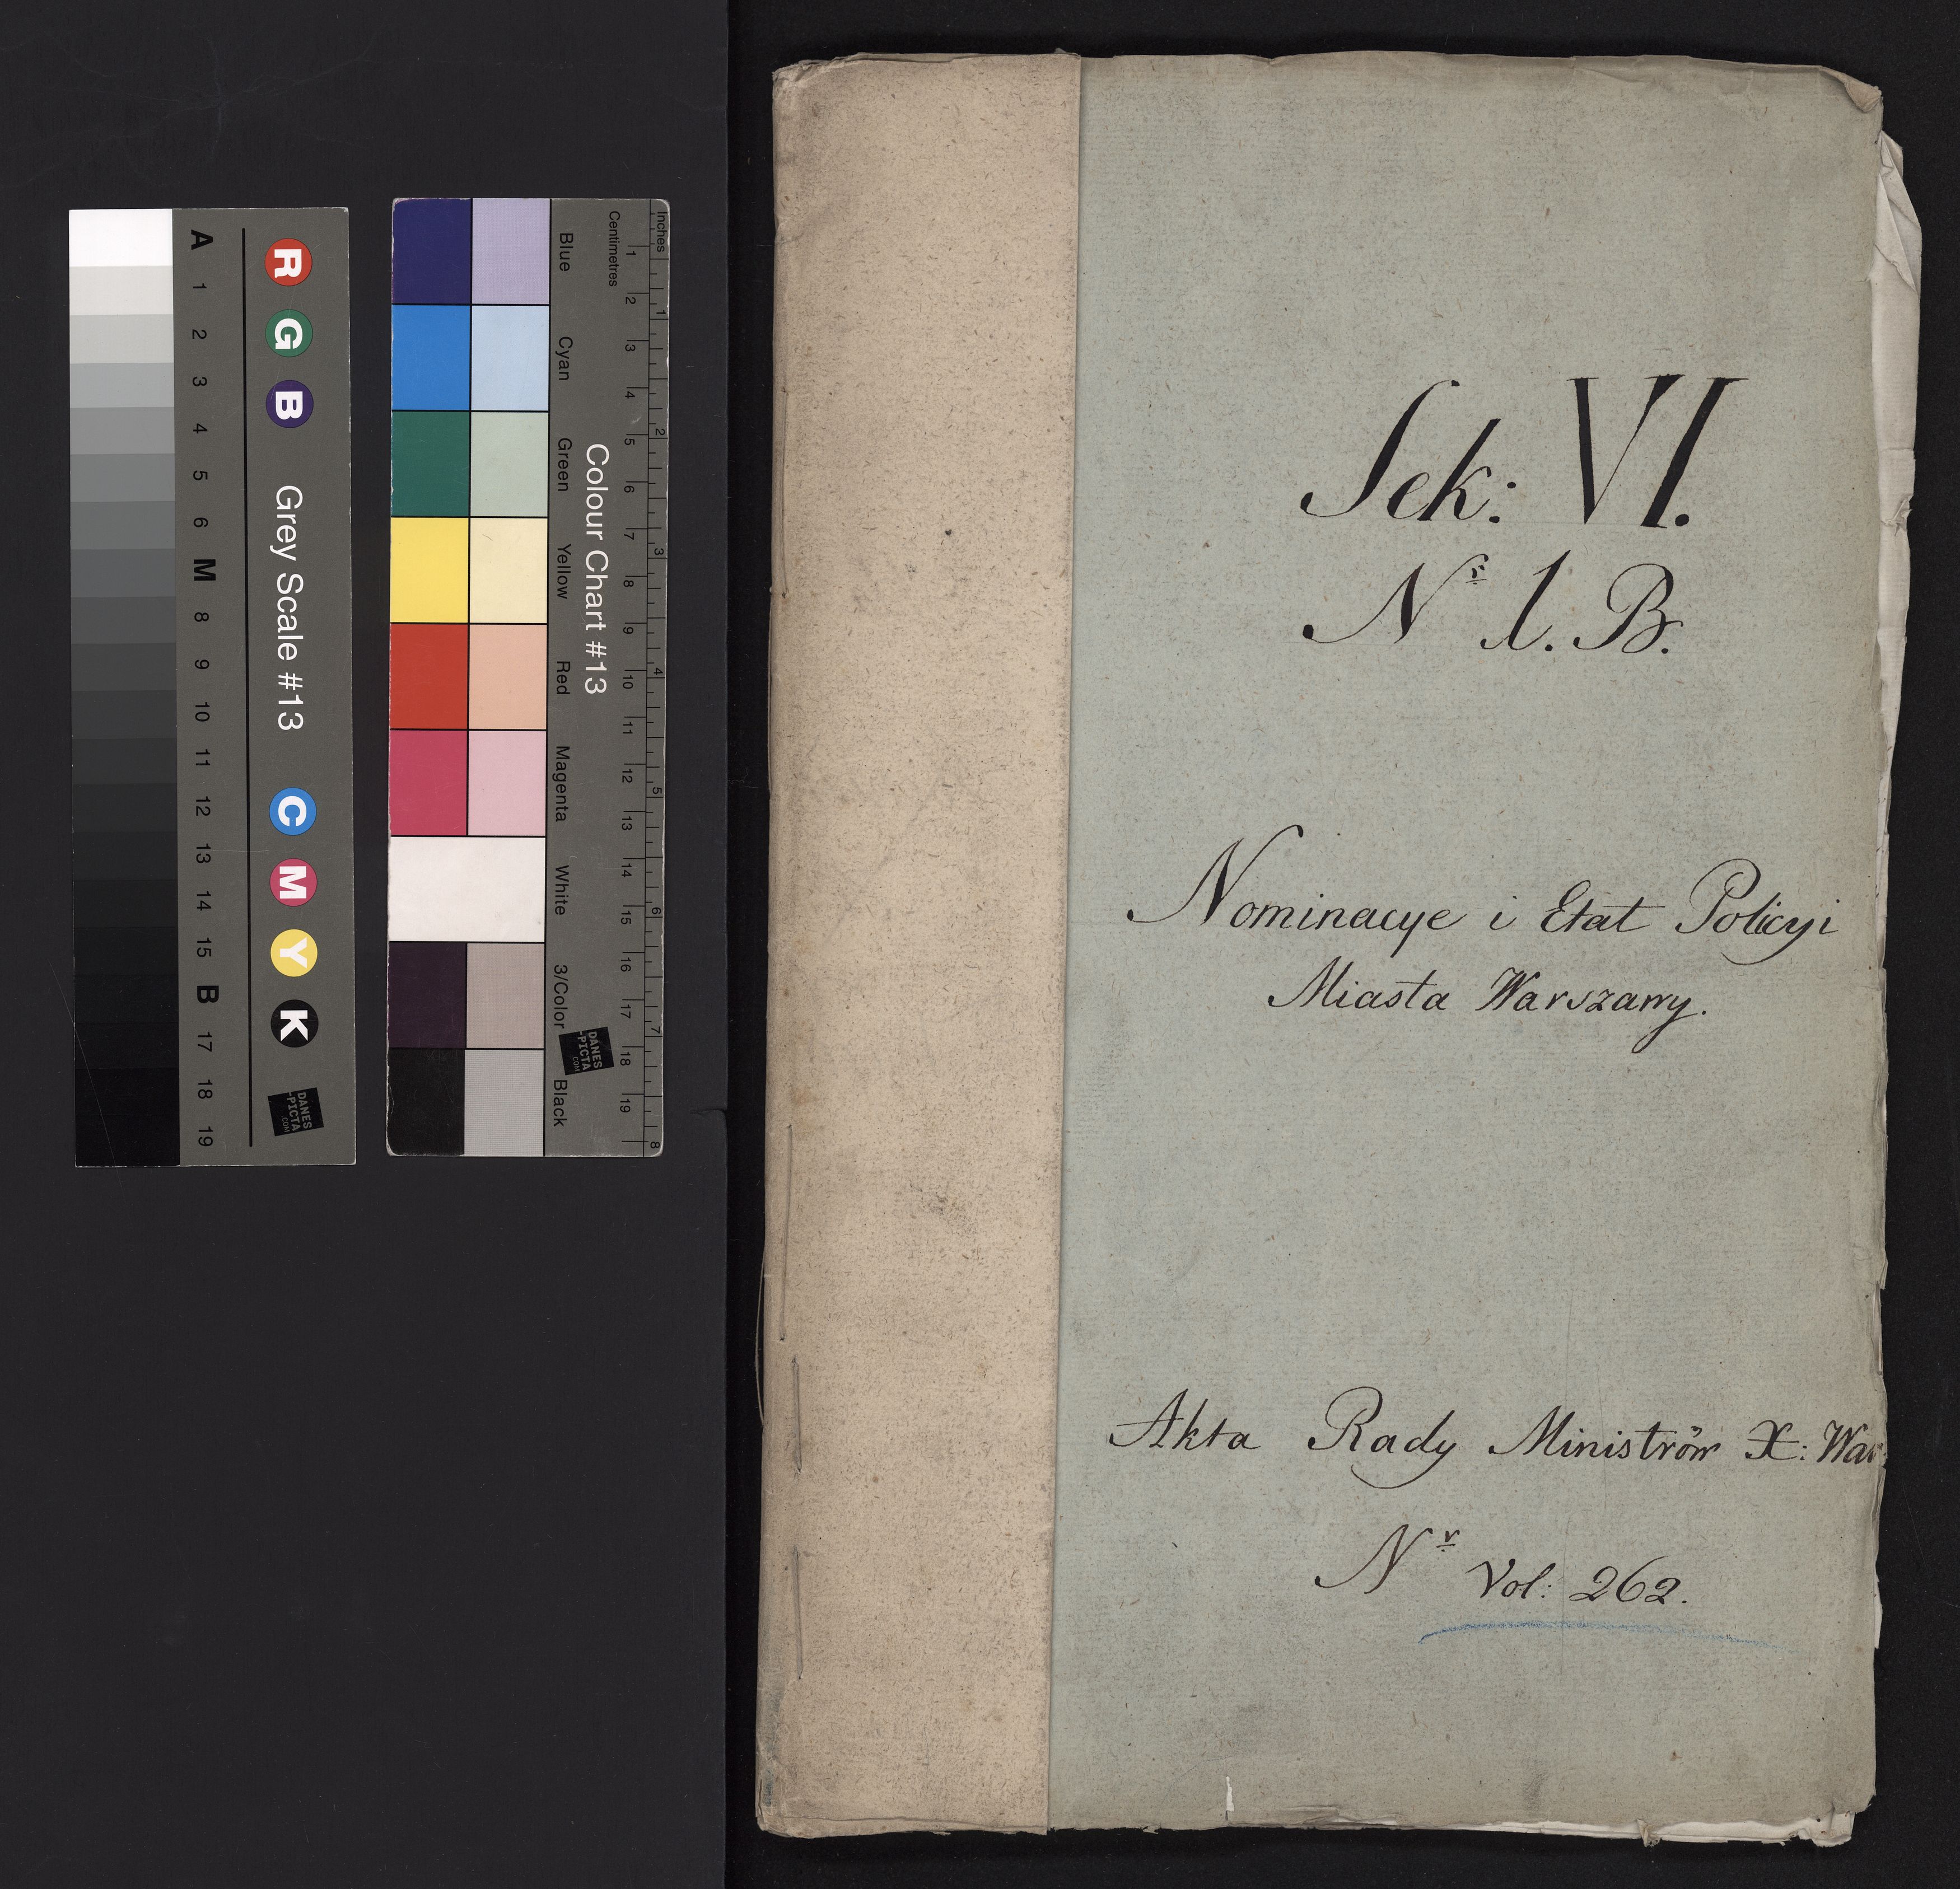 Sek: VI.
Nr 1. B.
Nominacye i Etat Policyi
Miasta Warszawy.
Akta Rady Ministrów X: War:
Nr Vol: 262.
A 1 2 3 4 5 6 M 8 9 10 11 12 13 14 15 B 17 18 19
R G B Grey Scale #13 C M Y K
DANES
-PICTA
.COM
Blue Cyan Green Yellow Red Magenta White 3/Color Black
Colour Chart #13
DANES
-PICTA
.COM
Centimetres 1 2 3 4 5 6 7 8 9 10 11 12 13 14 15 16 17 18 19
Inches 1 2 3 4 5 6 7 8